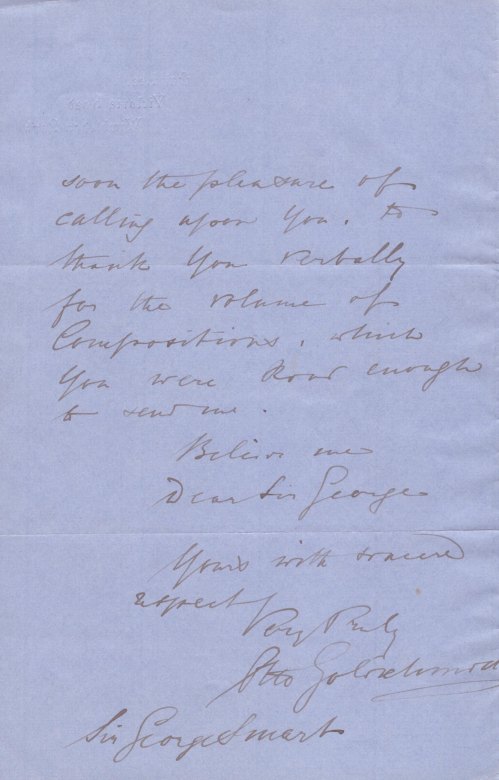 soon the pleasure of
calling upon you, to
thank You verbally
for the volume of
Compositions, which
You were kind enough
to send me.
Believe me
Dear Sir George
Yours with sincere
respect
Very Truly
Otto Goldschmidt
Sir George Smart